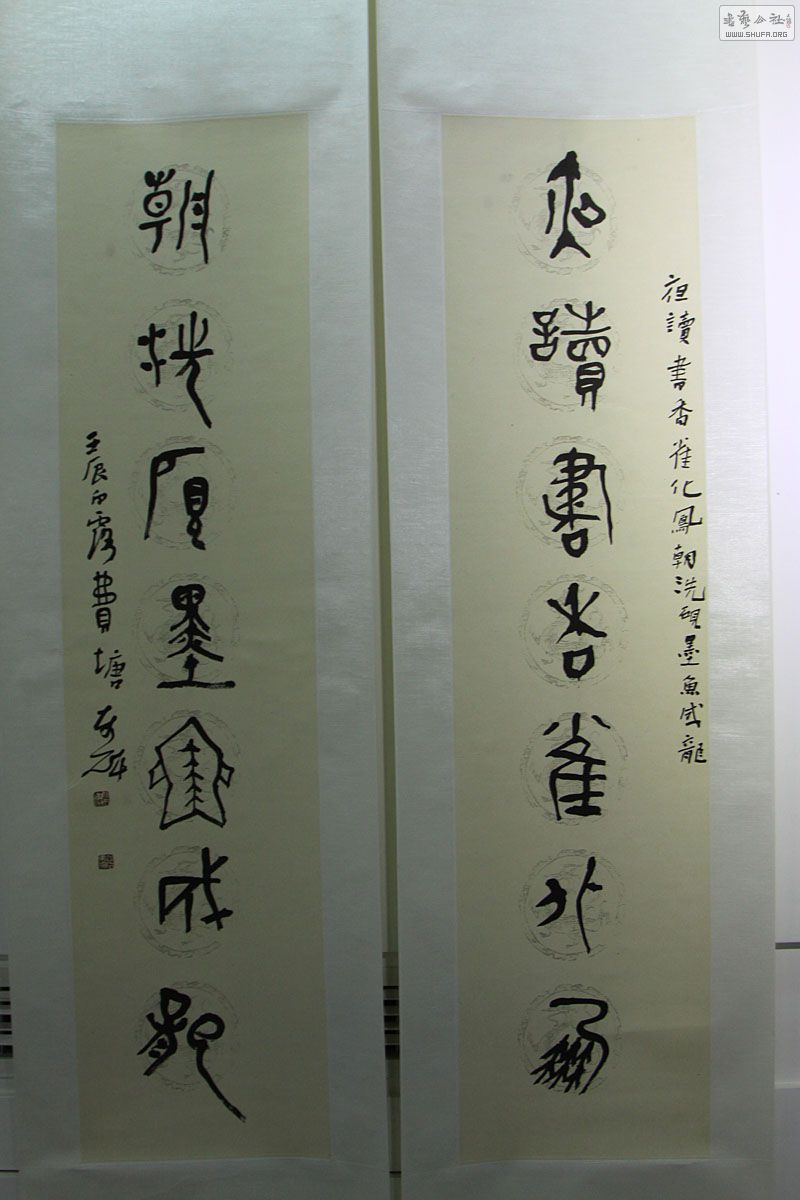 夜讀書香雀化鳳
夜讀書香雀化鳳朝洗硯墨魚成龍
朝洗硯墨魚成龍
壬辰白露費塘
書藝公社
WWW.SHUFA.ORG